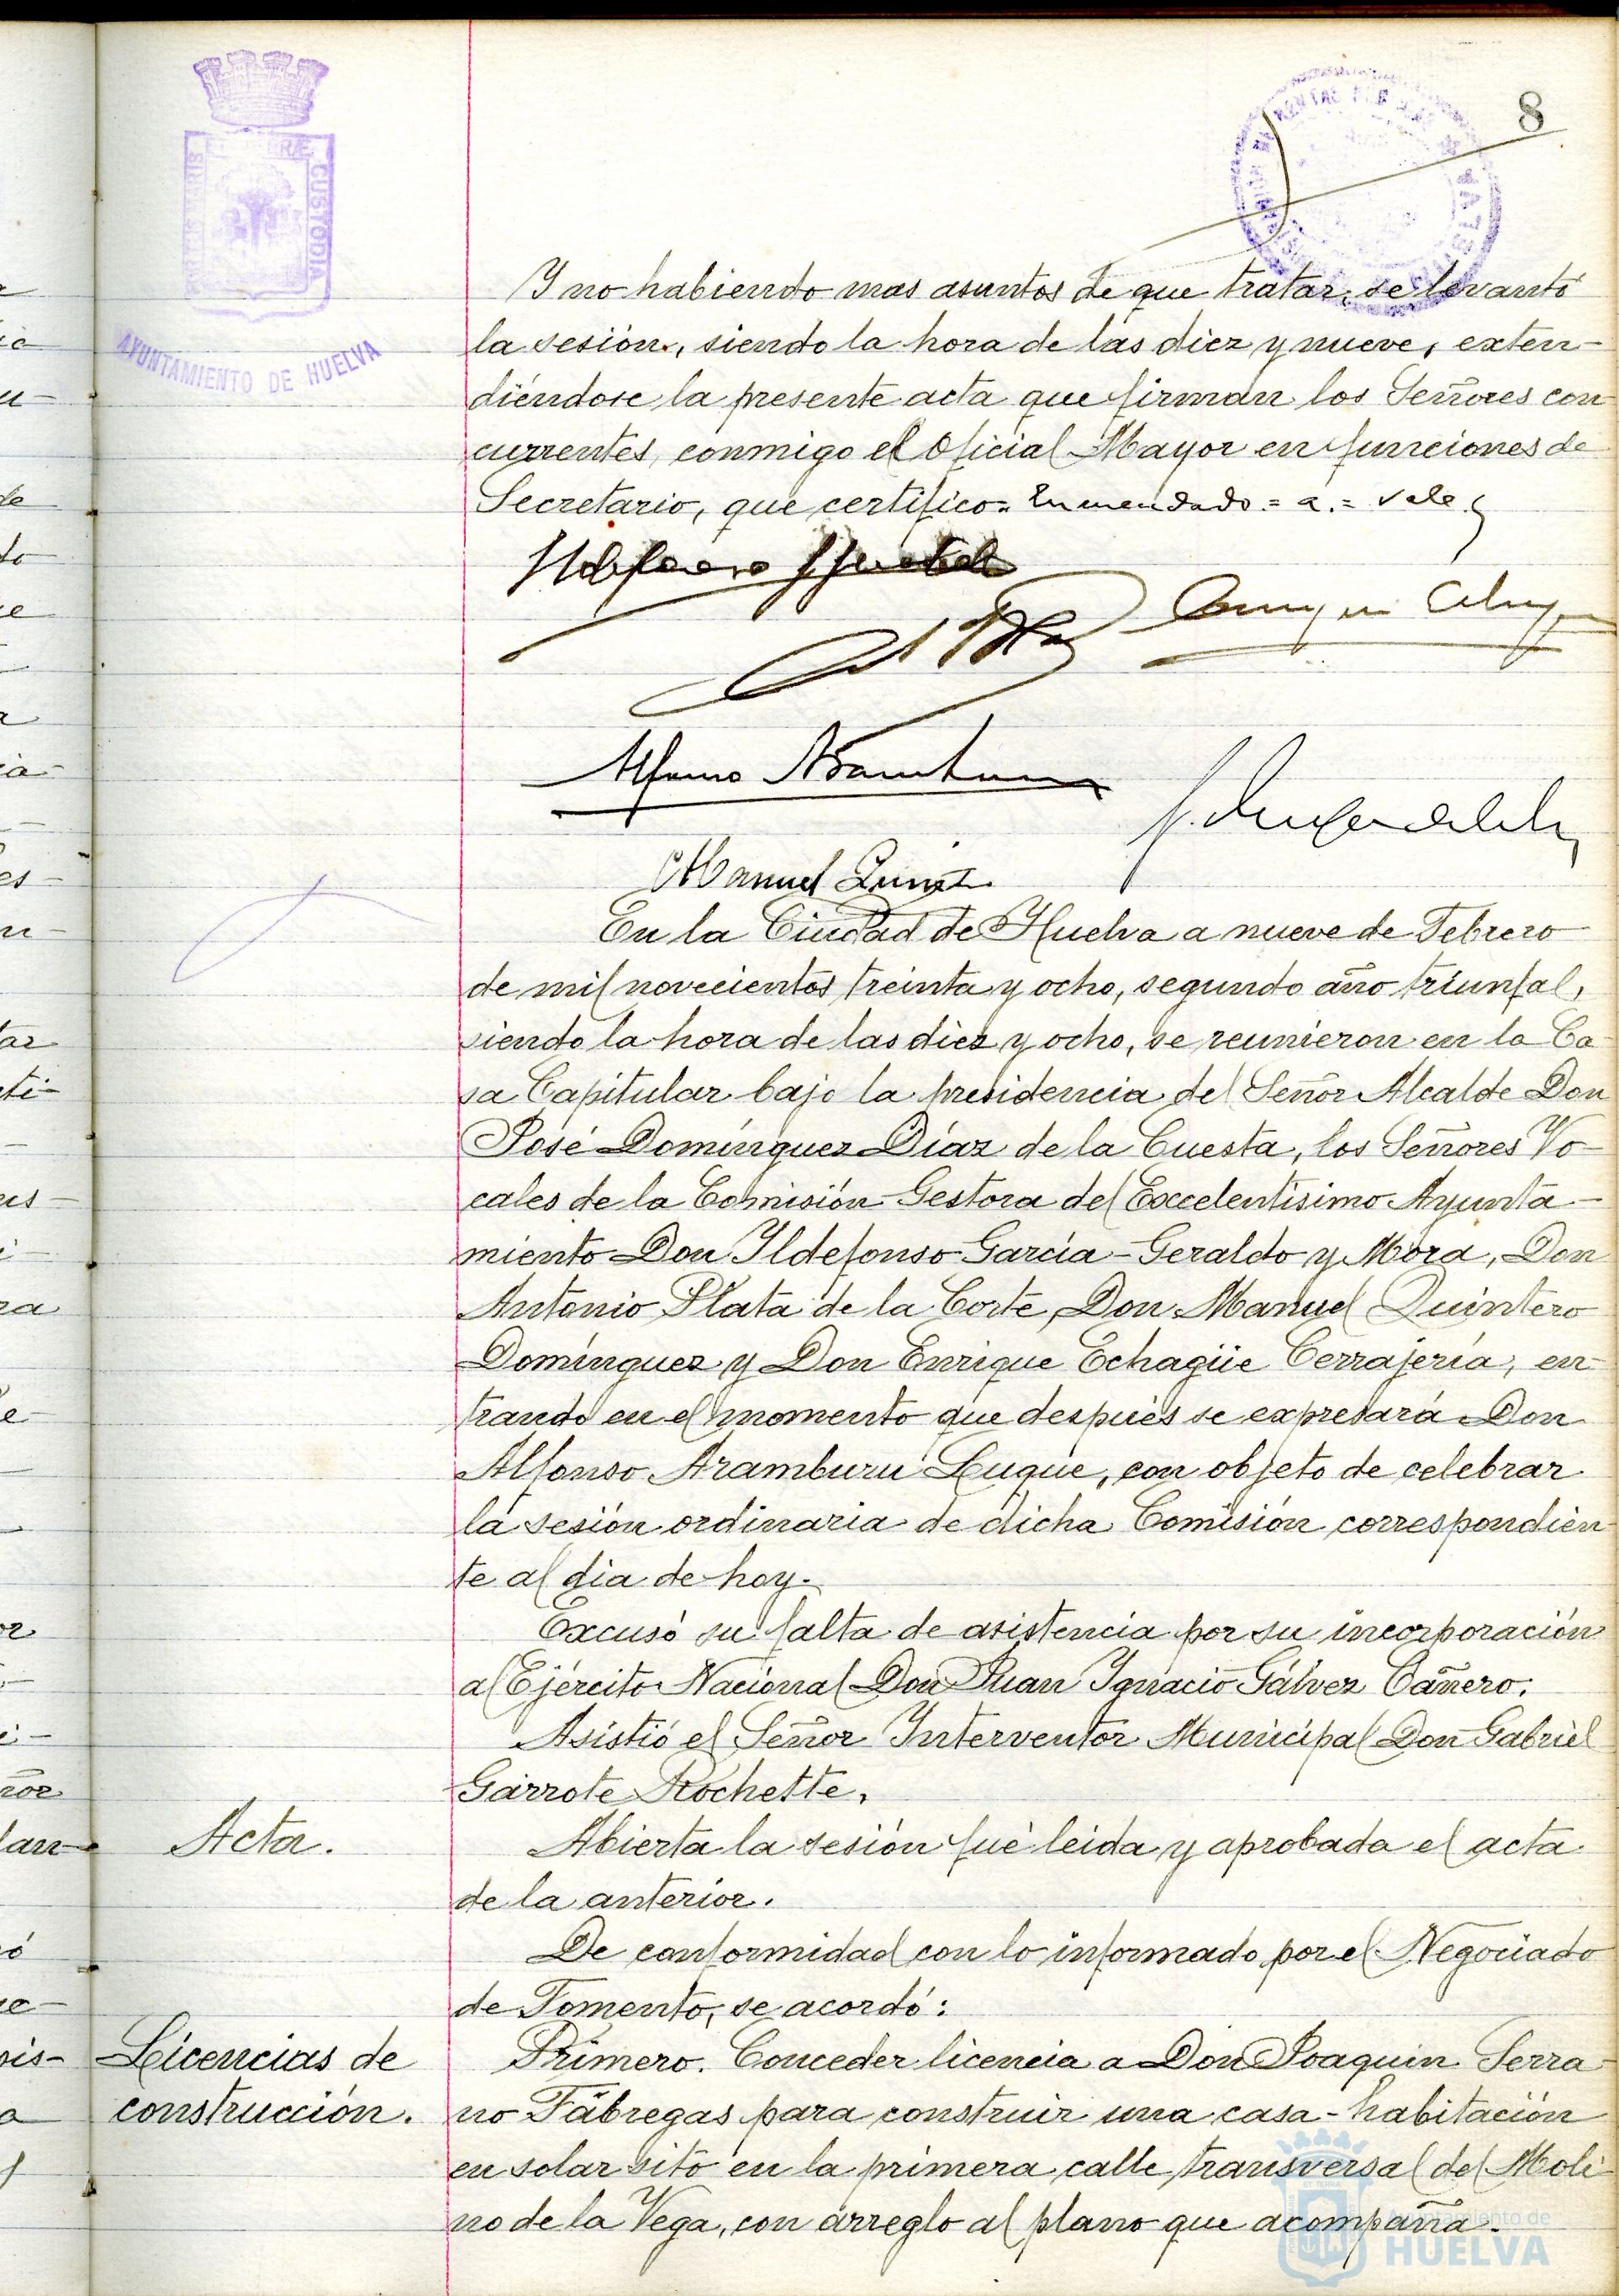 8
AYUNTAMIENTO DE HUELVA
CUSTODIA
Y no habiendo mas asuntos de que tratar, se levantó
la sesión, siendo la hora de las diez y nueve, exten-
diéndose la presente acta que firman los Señores con
currentes, conmigo el Oficial Mayor en funciones de
Secretario, que certifico= Enmendado = a. = vale.
Alfonso Aramburu
Manuel
En la Ciudad de Huelva a nueve de Febrero
de mil novecientos treinta y ocho, segundo año triunfal,
siendo la hora de las diez y ocho, se reunieron en la Ca
sa Capitular bajo la presidencia del Señor Alcalde Don
José Domínguez Díaz de la Cuesta, los Señores Vo-
cales de la Comisión Gestora del Excelentísimo Ayunta-
miento Don Ildefonso García-Geraldo y Mora, Don
Antonio Plata de la Corte, Don Manuel Quintero
Domínguez y Don Enrique Echagüe Cerrajería, en-
trando en el momento que después se expresará Don
Alfonso Aramburu Luque, con objeto de celebrar
la sesión ordinaria de dicha Comisión correspondien-
te al dia de hoy.
Excusó su falta de asistencia por su incorporación
al Ejército Nacional Don Juan Ignacio Gálvez Cañero.
Asistió el Señor Interventor Municipal Don Gabriel
Garrote Rochette.
Acta.
Abierta la sesión fué leida y aprobada el acta
de la anterior.
De conformidad con lo informado por el Negociado
de Fomento, se acordó:
Licencias de
construcción.
Primero. Conceder licencia a Don Joaquin Serra
no Fábregas para construir una casa-habitación
en solar sito en la primera calle transversal del Moli-
no de la Vega, con arreglo al plano que acompaña.
Ayuntamiento de
HUELVA